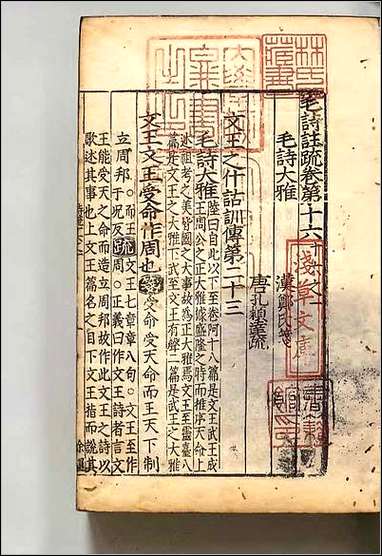 毛詩註疏卷第十六
毛詩大雅 漢鄭氏箋
唐孔穎達疏
文王之什詁訓傳第二十三
毛詩大雅
陸曰自此以下至卷阿十八篇是文王武王成
王周公之正大雅據盛隆之時而推序天命上
述祖考之美皆國之大事故為正大雅焉文王至靈臺八
篇是文王之大雅下武至文王有聲二篇是武王之大雅
文王文王受命作周也箋受命受天命而王天下制
立周邦。而王于況反疏文王七章章八句。文王至作
周。正義曰作文王詩者言文
王能受天之命而造立周邦故作此文王之詩以
歌述其事也上文王篇名之目下文王指而說其
林氏藏書
淺草文庫